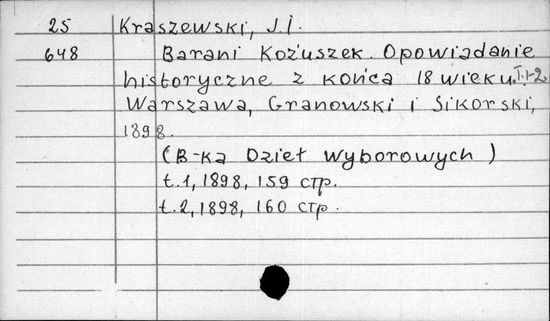 25 Kraszewski, J.I.
648 Barani Kożuszek. Opowiadanie
historyczne z końca 18 wieku. T.1-2.
Warszawa, Granowski i Sikorski,
1898.
(B-ka Dzieł wyborowych)
t.1, 1898, 159 стр.
t.2, 1898, 160 стр.